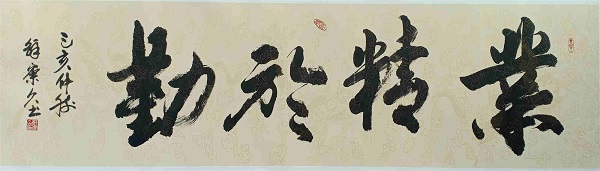 業精於勤
己亥仲秋